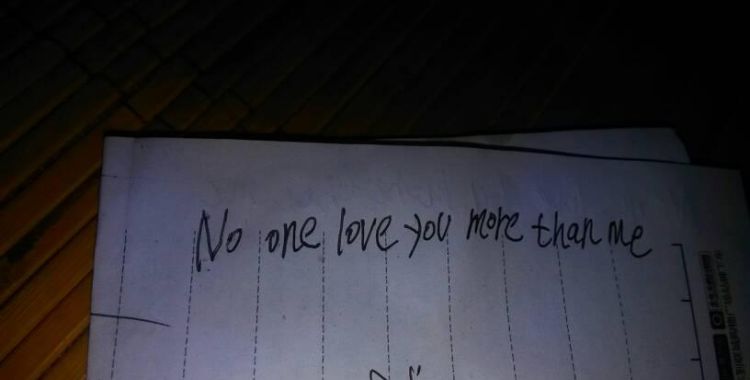 No one love you more than me